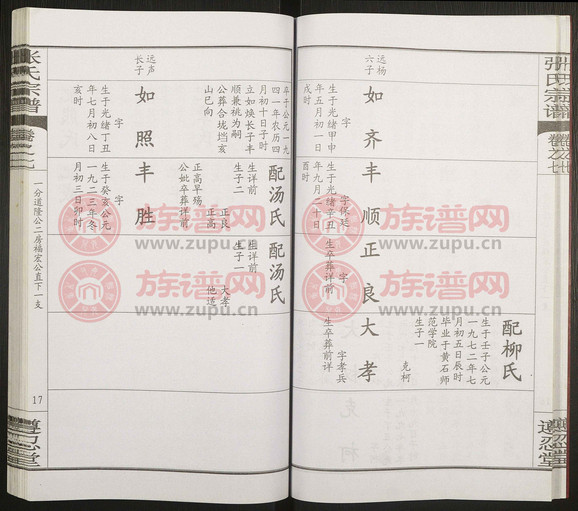 张氏宗谱
卷之七
遵忍堂
远杨
六子
如齐
字
生于光绪甲申
年五月初一日
戌时
丰顺
字保廷
生于光绪辛丑
年九月二十日
酉时
正良
字
生卒葬详前
大孝
字孝兵
生卒葬前详
配柳氏
生于壬子公元
一九七二年七
月初五辰时
毕业于黄石师
范学院
生子一
克柯
远声
长子
如照
字
生于光绪丁丑
年七月初八日
亥时
卒于公元一九
四一年农历四
月初十日子时
立如焕长子丰
顺兼桃为嗣
公葬合垅垱亥
山巳向
丰胜
字
生于癸亥公元
一九二三年冬
月初三日卯时
配汤氏
生详前
生子二
正良
正高
正高早殇
公妣卒葬详前
配汤氏
生详前
生子一
大孝
他适
张氏宗谱
卷之七
一分道隆公二房福宏公直下一支
17
遵忍堂
族谱网
www.zupu.cn
族谱网
www.zupu.cn
族谱网
www.zupu.cn
族谱网
www.zupu.cn